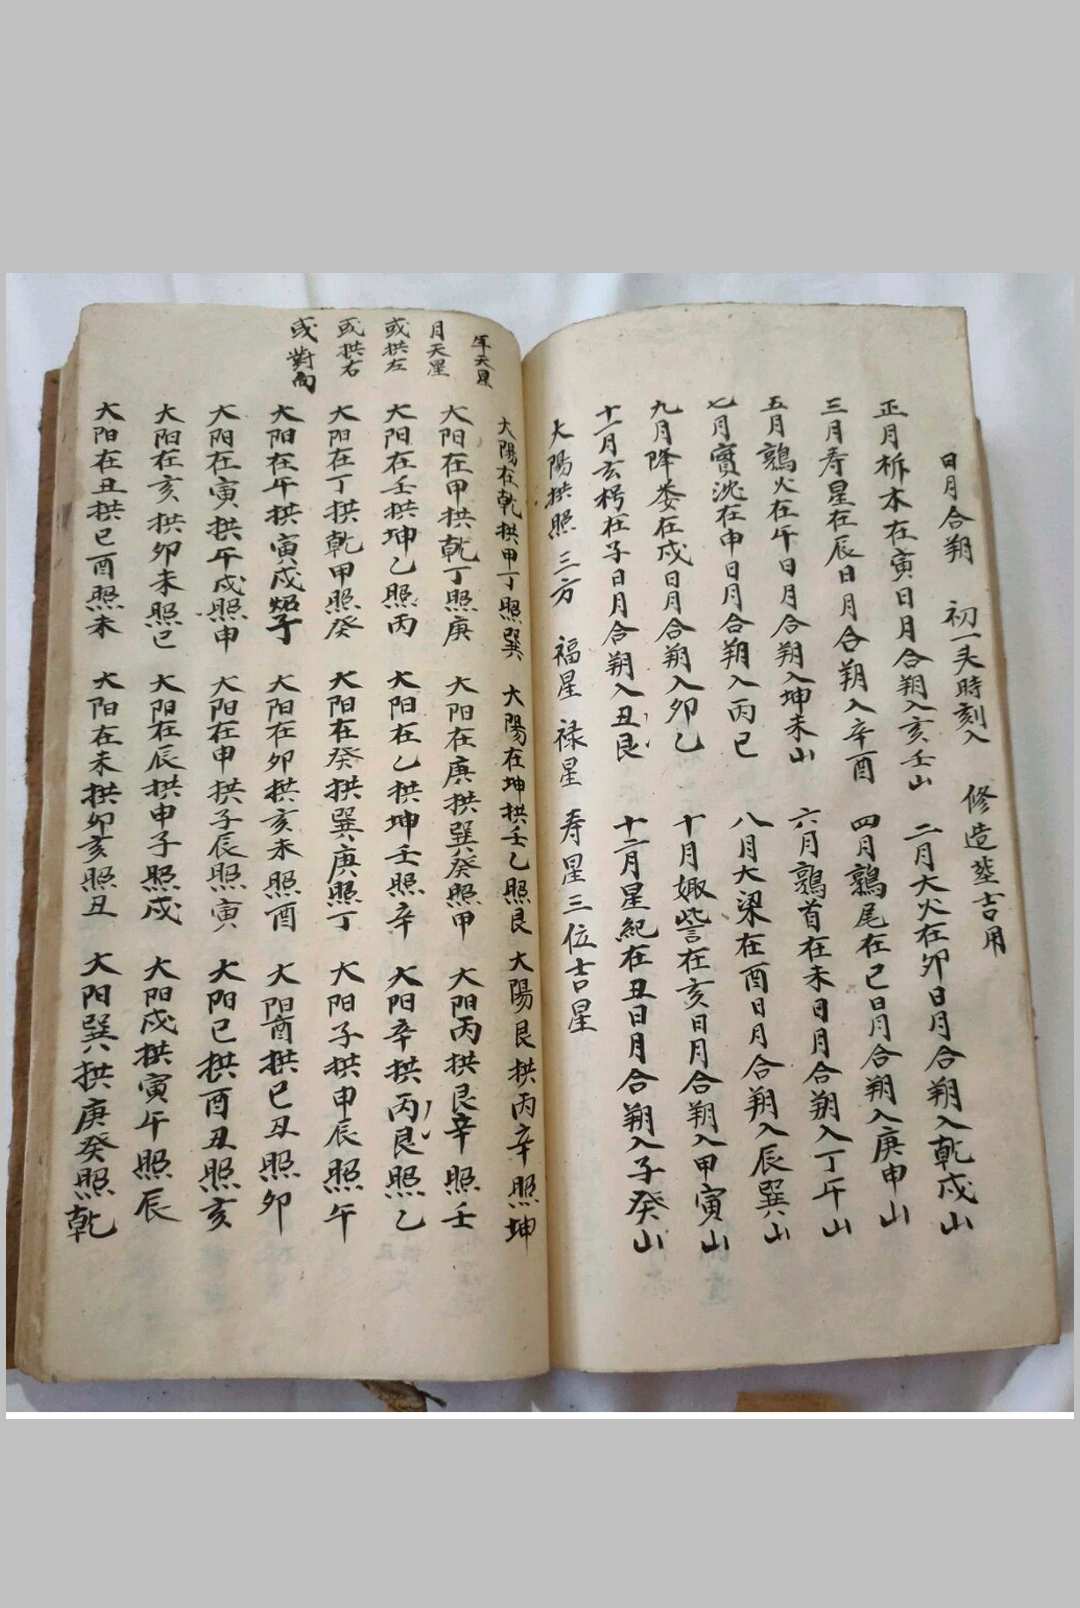 日月合朔 初一头時刻入 修造莖吉用
正月析木在寅日月合朔入亥壬山 二月大火在卯日月合朔入乾戍山
三月寿星在辰日月合朔入辛酉 四月鶉尾在巳日月合朔入庚申山
五月鶉火在午日月合朔入坤未山 六月鶉首在未日月合朔入丁午山
七月實沈在申日月合朔入丙巳 八月大梁在酉日月合朔入辰巽山
九月降娄在戍日月合朔入卯乙 十月娵訾在亥日月合朔入甲寅山
十一月玄枵在子日月合朔入丑艮 十二月星紀在丑日月合朔入子癸山
大陽拱照三方 福星 禄星 寿星三位吉星
年天星
月天星
或拱左
或拱右
或對向
大陽在乾拱甲丁照巽 大陽在坤拱壬乙照艮 大陽艮拱丙辛照坤
大阳在甲拱乾丁照庚 大阳在庚拱巽癸照甲 大阳丙拱艮辛照壬
大阳在壬拱坤乙照丙 大阳在乙拱坤壬照辛 大阳辛拱丙艮照乙
大阳在丁拱乾甲照癸 大阳在癸拱巽庚照丁 大阳子拱申辰照午
大阳在午拱寅戍炤子 大阳在卯拱亥未照酉 大阳酉拱巳丑照卯
大阳在寅拱午戍照申 大阳在申拱子辰照寅 大阳巳拱酉丑照亥
大阳在亥拱卯未照巳 大阳在辰拱申子照戍 大阳戍拱寅午照辰
大阳在丑拱巳酉照未 大阳在未拱卯亥照丑 大阳巽拱庚癸照乾